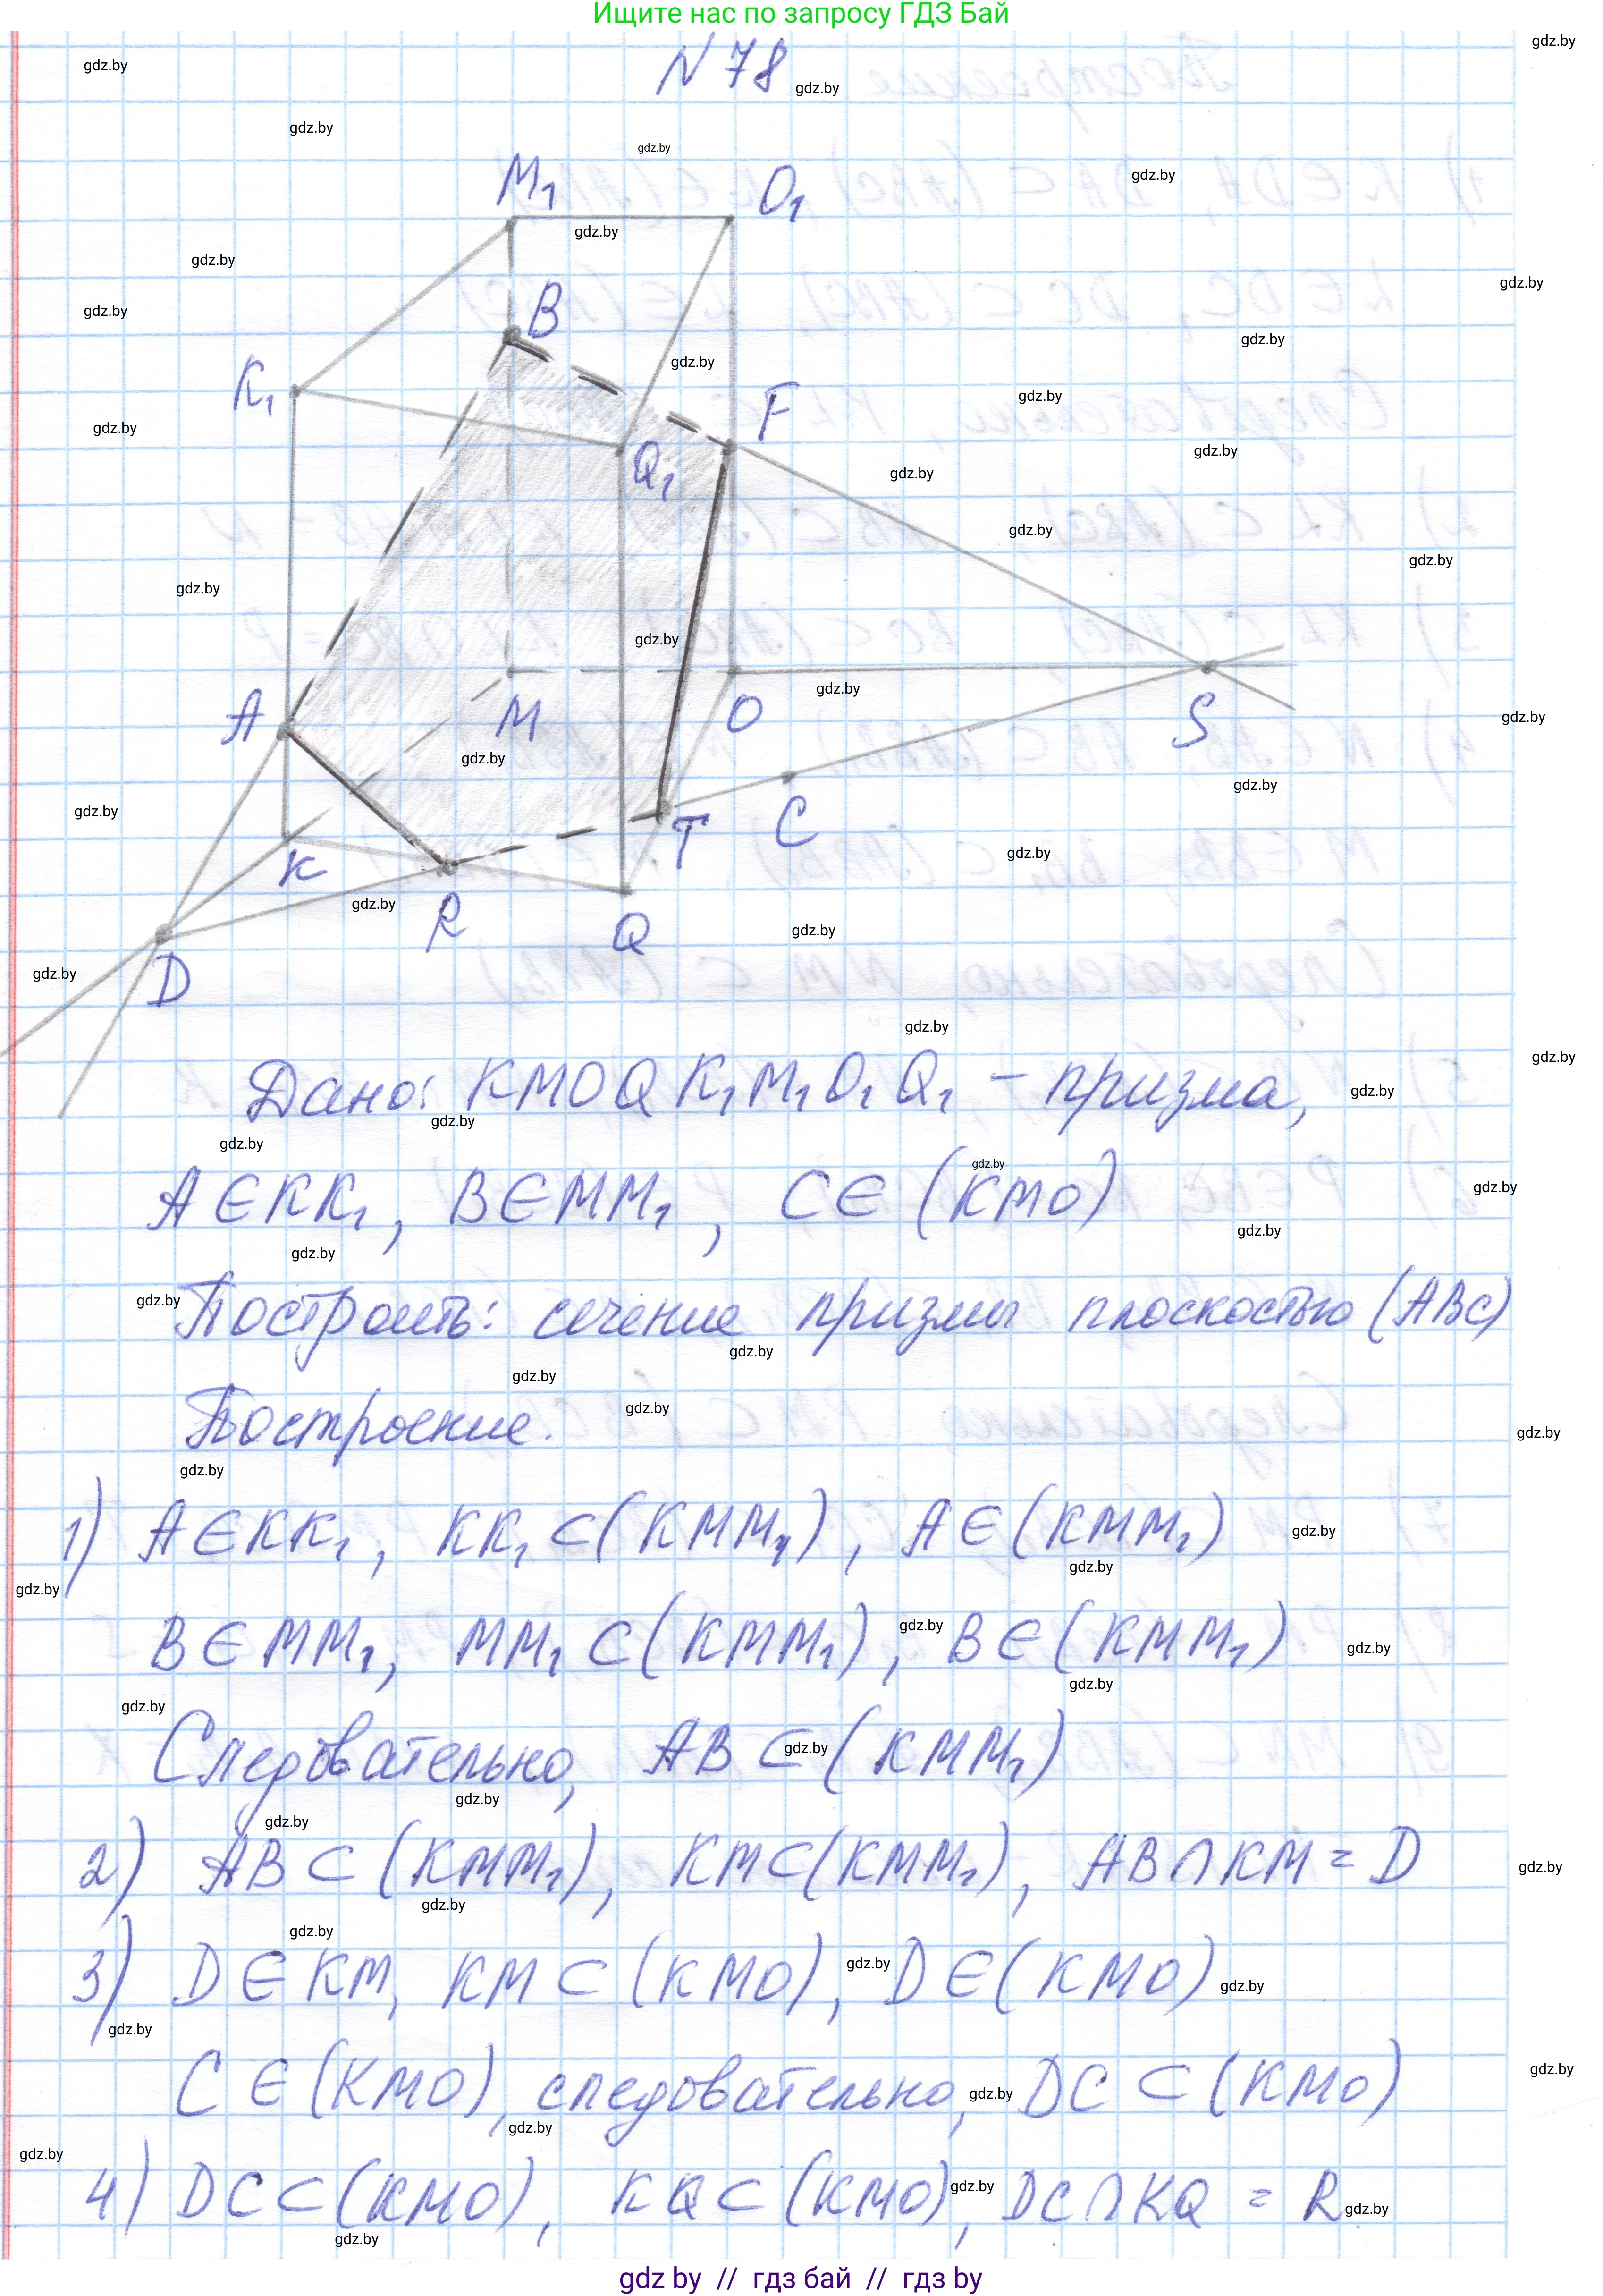 Ищите нас по запросу ГДЗ Бай
N 78
M₁
O₁
B
K₁
F
Q₁
A
M
O
S
T
C
K
R
Q
D
Дано: KMOQK₁M₁O₁Q₁ - призма,
A∈KK₁, B∈MM₁, C∈(KMO)
Построить: сечение призмы плоскостью (ABC)
Построение.
1) A∈KK₁, KK₁⊂(KMM₁), A∈(KMM₁)
B∈MM₁, MM₁⊂(KMM₁), B∈(KMM₁)
Следовательно, AB⊂(KMM₁)
2) AB⊂(KMM₁), KM⊂(KMM₁), AB∩KM=D
3) D∈KM, KM⊂(KMO), D∈(KMO)
C∈(KMO), следовательно, DC⊂(KMO)
4) DC⊂(KMO), KQ⊂(KMO), DC∩KQ = R
gdz by // гдз бай // гдз by